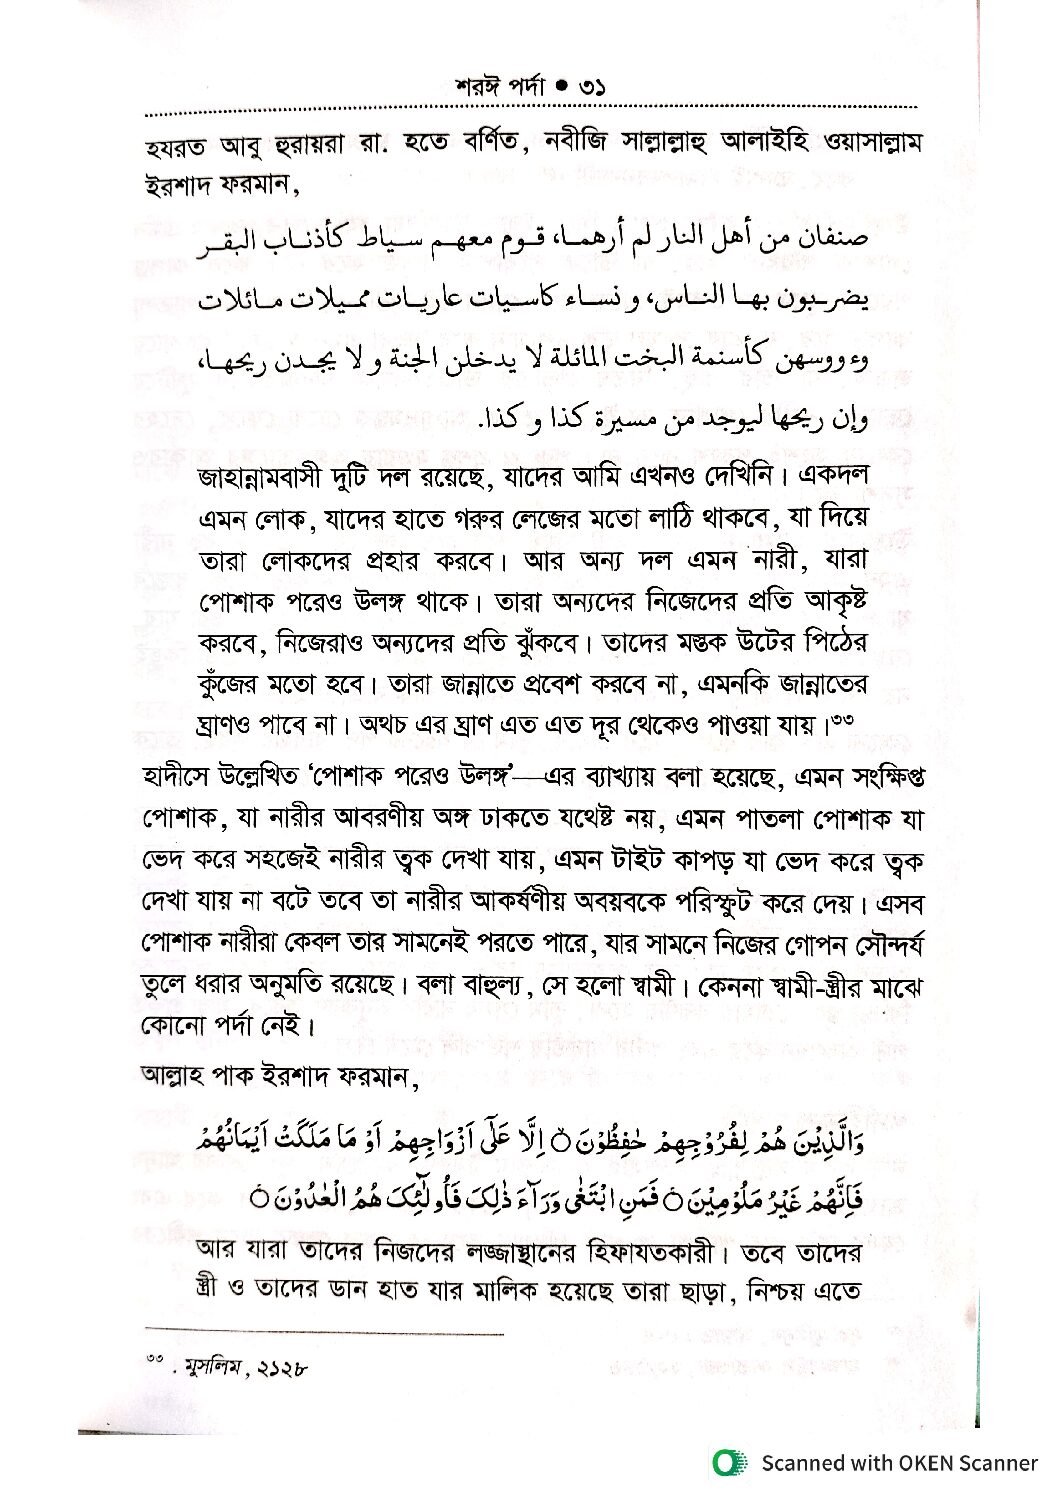 শরঈ পর্দা ● ৩১
হযরত আবু হুরায়রা রা. হতে বর্ণিত, নবীজি সাল্লাল্লাহু আলাইহি ওয়াসাল্লাম
ইরশাদ ফরমান,
صنفان من أهل النار لم أرهما، قوم معهم سياط كأذناب البقر
يضربون بها الناس، و نساء كاسيات عاريات مميلات مائلات
وءووسهن كأسنمة البخت المائلة لا يدخلن الجنة و لا يجدن ريحها،
وإن ريحها ليوجد من مسيرة كذا و كذا.
জাহান্নামবাসী দুটি দল রয়েছে, যাদের আমি এখনও দেখিনি। একদল
এমন লোক, যাদের হাতে গরুর লেজের মতো লাঠি থাকবে, যা দিয়ে
তারা লোকদের প্রহার করবে। আর অন্য দল এমন নারী, যারা
পোশাক পরেও উলঙ্গ থাকে। তারা অন্যদের নিজেদের প্রতি আকৃষ্ট
করবে, নিজেরাও অন্যদের প্রতি ঝুঁকবে। তাদের মস্তক উটের পিঠের
কুঁজের মতো হবে। তারা জান্নাতে প্রবেশ করবে না, এমনকি জান্নাতের
ঘ্রাণও পাবে না। অথচ এর ঘ্রাণ এত এত দূর থেকেও পাওয়া যায়।৩৩
হাদীসে উল্লেখিত ‘পোশাক পরেও উলঙ্গ’—এর ব্যাখ্যায় বলা হয়েছে, এমন সংক্ষিপ্ত
পোশাক, যা নারীর আবরণীয় অঙ্গ ঢাকতে যথেষ্ট নয়, এমন পাতলা পোশাক যা
ভেদ করে সহজেই নারীর ত্বক দেখা যায়, এমন টাইট কাপড় যা ভেদ করে ত্বক
দেখা যায় না বটে তবে তা নারীর আকর্ষণীয় অবয়বকে পরিস্ফুট করে দেয়। এসব
পোশাক নারীরা কেবল তার সামনেই পরতে পারে, যার সামনে নিজের গোপন সৌন্দর্য
তুলে ধরার অনুমতি রয়েছে। বলা বাহুল্য, সে হলো স্বামী। কেননা স্বামী-স্ত্রীর মাঝে
কোনো পর্দা নেই।
আল্লাহ পাক ইরশাদ ফরমান,
وَالَّذِيْنَ هُمْ لِفُرُوْجِهِمْ حٰفِظُوْنَ ۝ اِلَّا عَلٰۤى اَزْوَاجِهِمْ اَوْ مَا مَلَكَتْ اَيْمَانُهُمْ
فَاِنَّهُمْ غَيْرُ مَلُوْمِيْنَ ۝ فَمَنِ ابْتَغٰى وَرَآءَ ذٰلِكَ فَاُولٰٓئِكَ هُمُ الْعٰدُوْنَ ۝
আর যারা তাদের নিজদের লজ্জাস্থানের হিফাযতকারী। তবে তাদের
স্ত্রী ও তাদের ডান হাত যার মালিক হয়েছে তারা ছাড়া, নিশ্চয় এতে
৩৩ . মুসলিম, ২১২৮
Scanned with OKEN Scanner